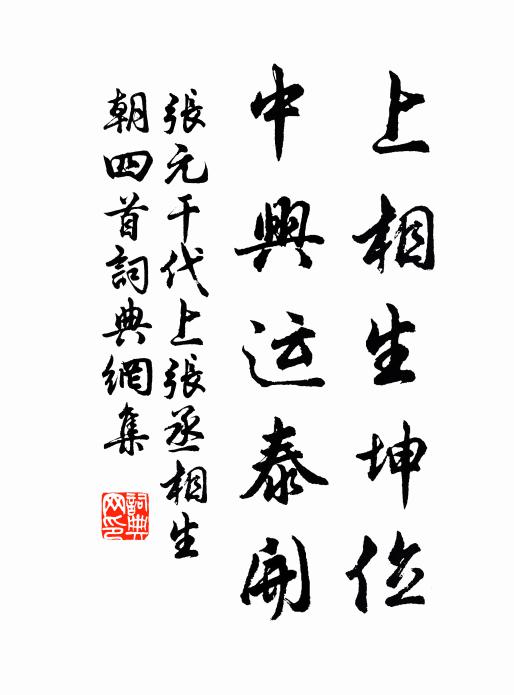 上相生坤位
中興运泰開
張元干代上張丞相生
朝四首詞典網集
詞典网印